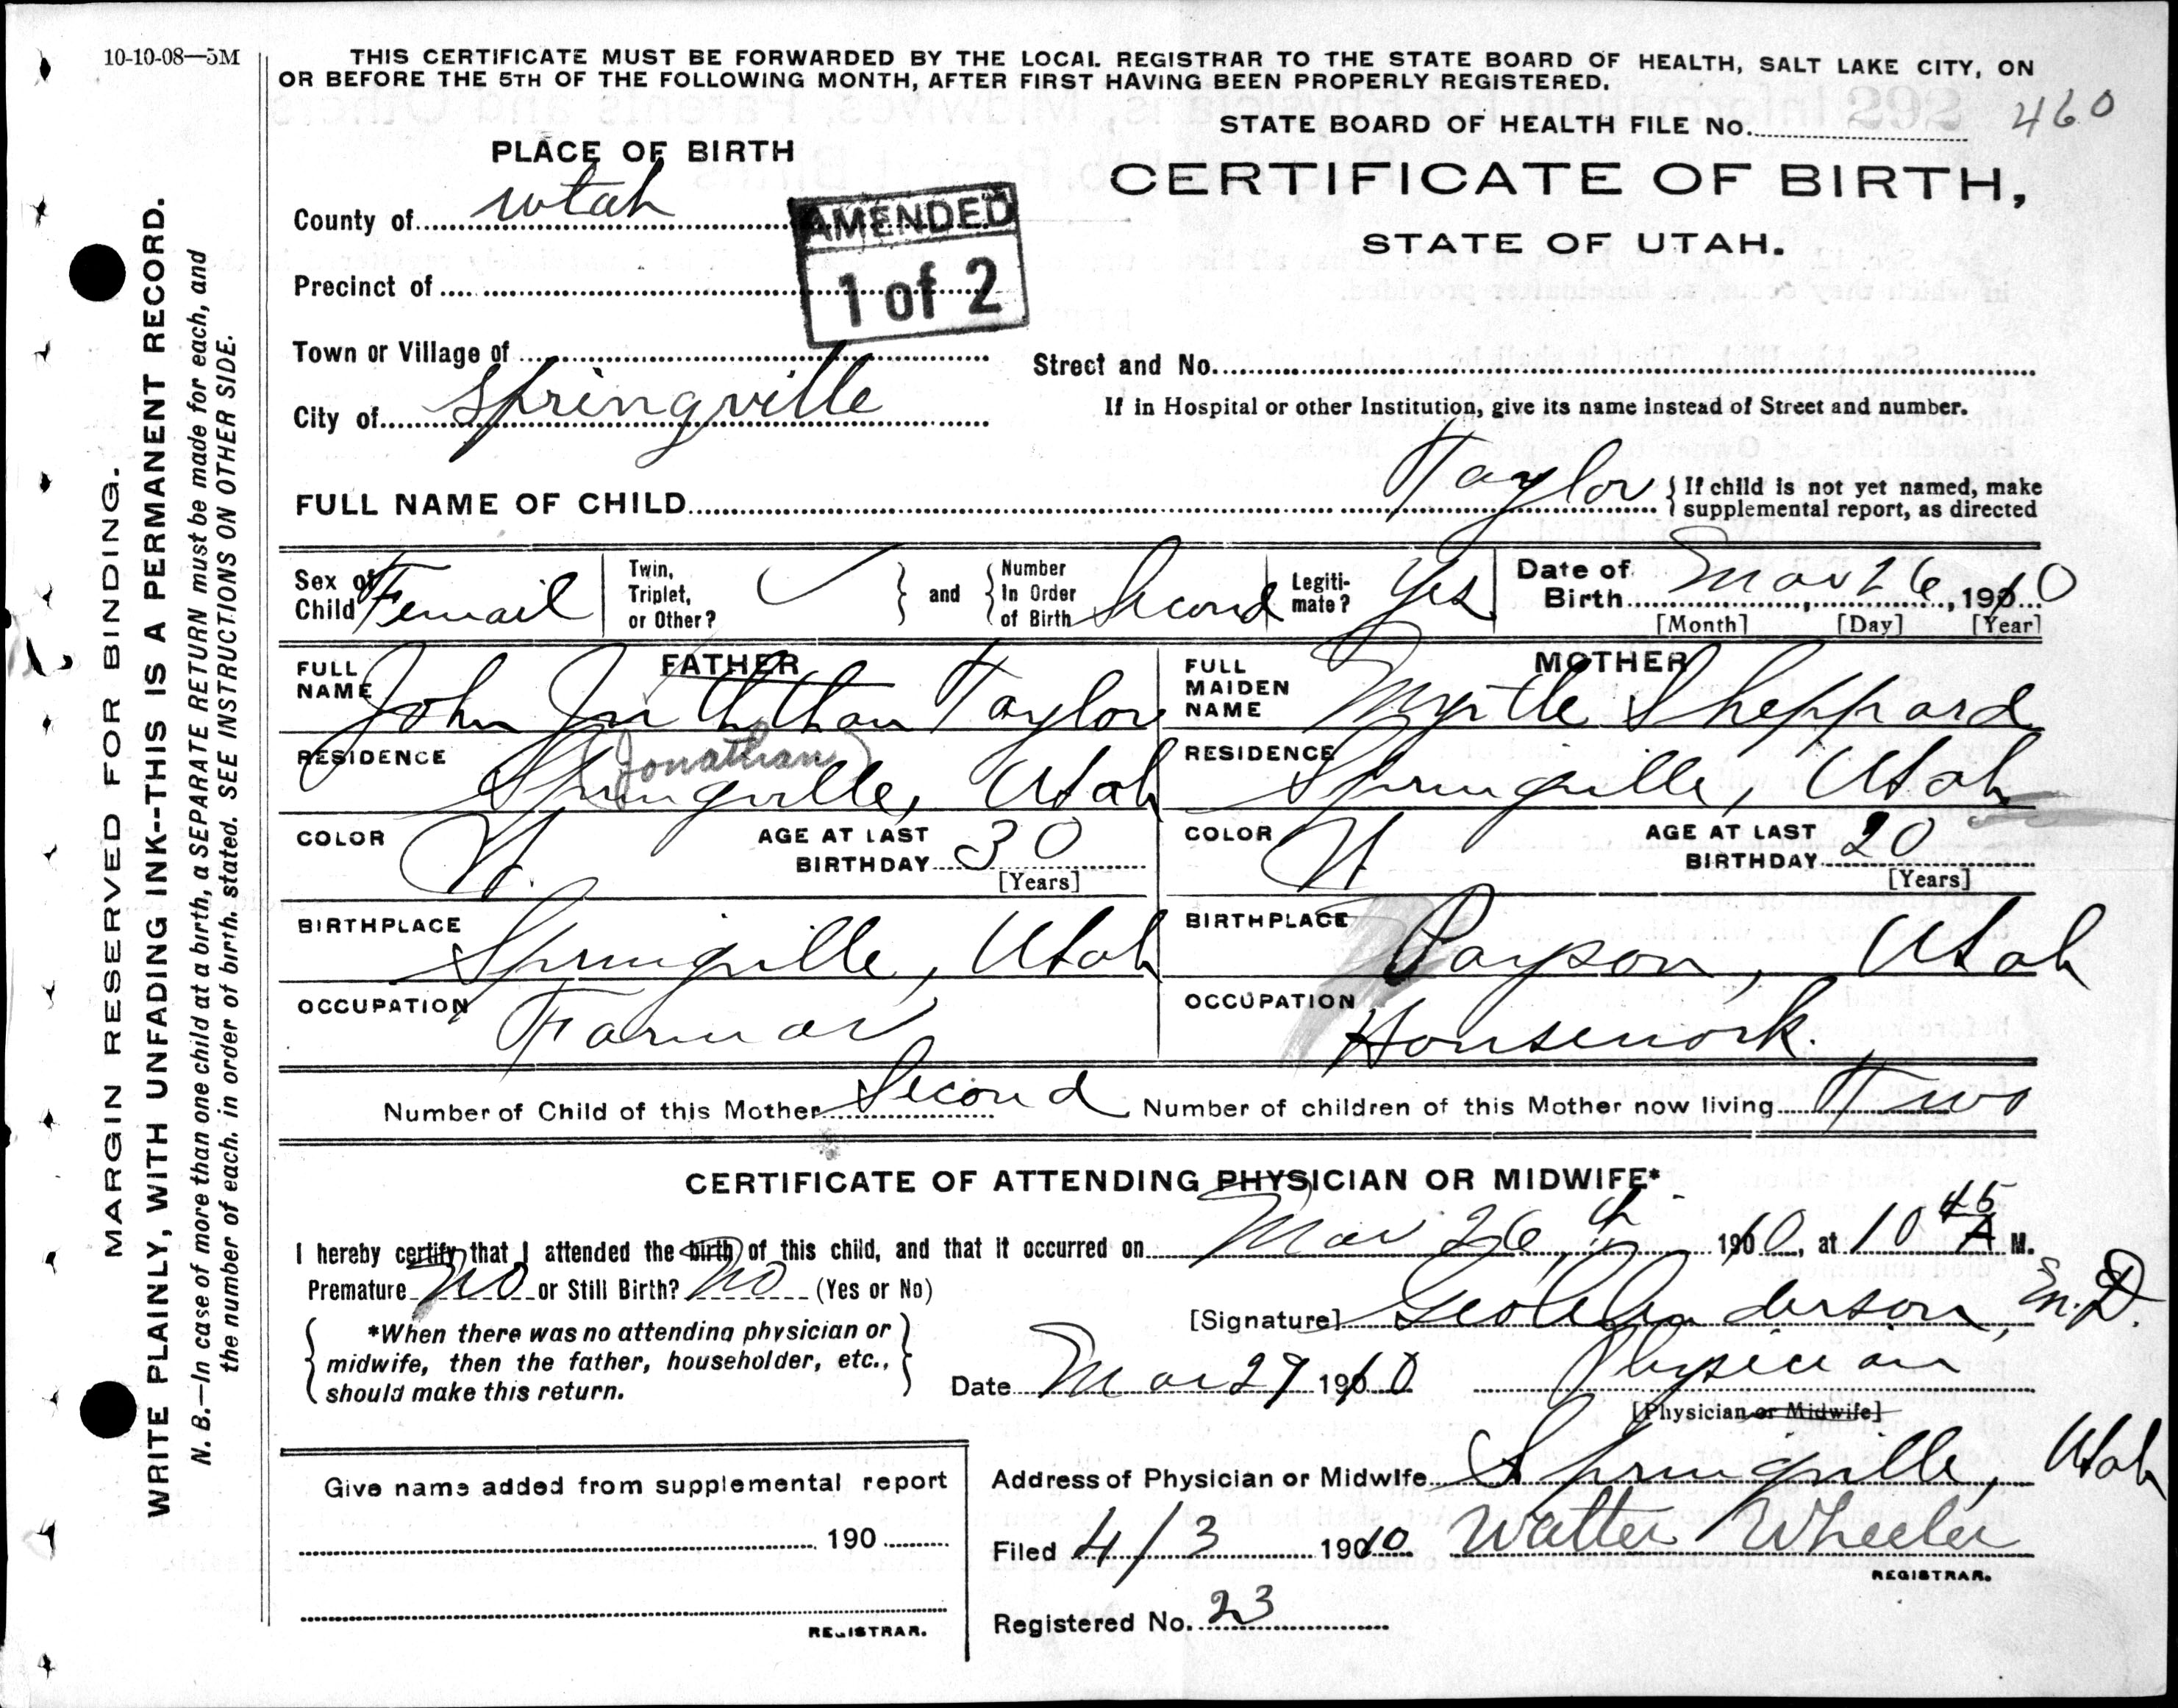 10-10-08—5M
THIS CERTIFICATE MUST BE FORWARDED BY THE LOCAL REGISTRAR TO THE STATE BOARD OF HEALTH, SALT LAKE CITY, ON
OR BEFORE THE 5TH OF THE FOLLOWING MONTH, AFTER FIRST HAVING BEEN PROPERLY REGISTERED.
STATE BOARD OF HEALTH FILE No. 460
PLACE OF BIRTH
CERTIFICATE OF BIRTH,
STATE OF UTAH.
County of Utah
AMENDED
1 of 2
Precinct of
Town or Village of
Street and No.
City of Springville
If in Hospital or other Institution, give its name instead of Street and number.
FULL NAME OF CHILD Taylor
If child is not yet named, make
supplemental report, as directed
Sex of Child Femail
Twin, Triplet, or Other?
and
Number In Order of Birth Second
Legiti-mate? Yes
Date of Birth Mar 26, 1910
[Month] [Day] [Year]
FATHER
FULL NAME John Taylor
(Jonathan)
RESIDENCE Springville, Utah
COLOR W.
AGE AT LAST BIRTHDAY 30
[Years]
BIRTHPLACE Springville, Utah
OCCUPATION Farmar
MOTHER
FULL MAIDEN NAME Myrtle Sheppard
RESIDENCE Springville, Utah
COLOR W
AGE AT LAST BIRTHDAY 20
[Years]
BIRTHPLACE Payson, Utah
OCCUPATION Housework.
Number of Child of this Mother Second Number of children of this Mother now living Two
CERTIFICATE OF ATTENDING PHYSICIAN OR MIDWIFE*
I hereby certify that I attended the birth of this child, and that it occurred on Mar 26th 1910, at 10 45 A M.
Premature No or Still Birth? No (Yes or No)
*When there was no attending physician or
midwife, then the father, householder, etc.,
should make this return.
[Signature] Geo Anderson, M.D.
Date Mar 29 1910 Physician
[Physician or Midwife]
Address of Physician or Midwife Springville, Utah
Give name added from supplemental report
190
REGISTRAR.
Filed 4/3 1910 Walter Wheeler
REGISTRAR.
Registered No. 23
MARGIN RESERVED FOR BINDING.
WRITE PLAINLY, WITH UNFADING INK--THIS IS A PERMANENT RECORD.
N. B.—In case of more than one child at a birth, a SEPARATE RETURN must be made for each, and
the number of each, in order of birth, stated. SEE INSTRUCTIONS ON OTHER SIDE.